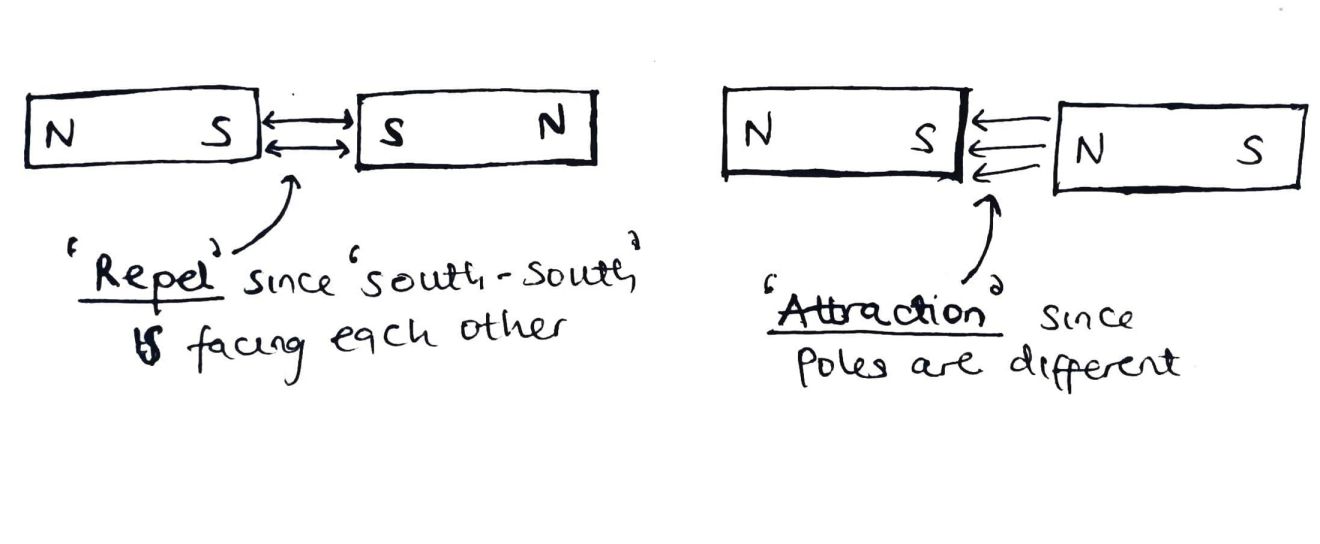 N S S N
N S N S
'Repel' since 'south-south'
is facing each other
'Attraction' since
Poles are different